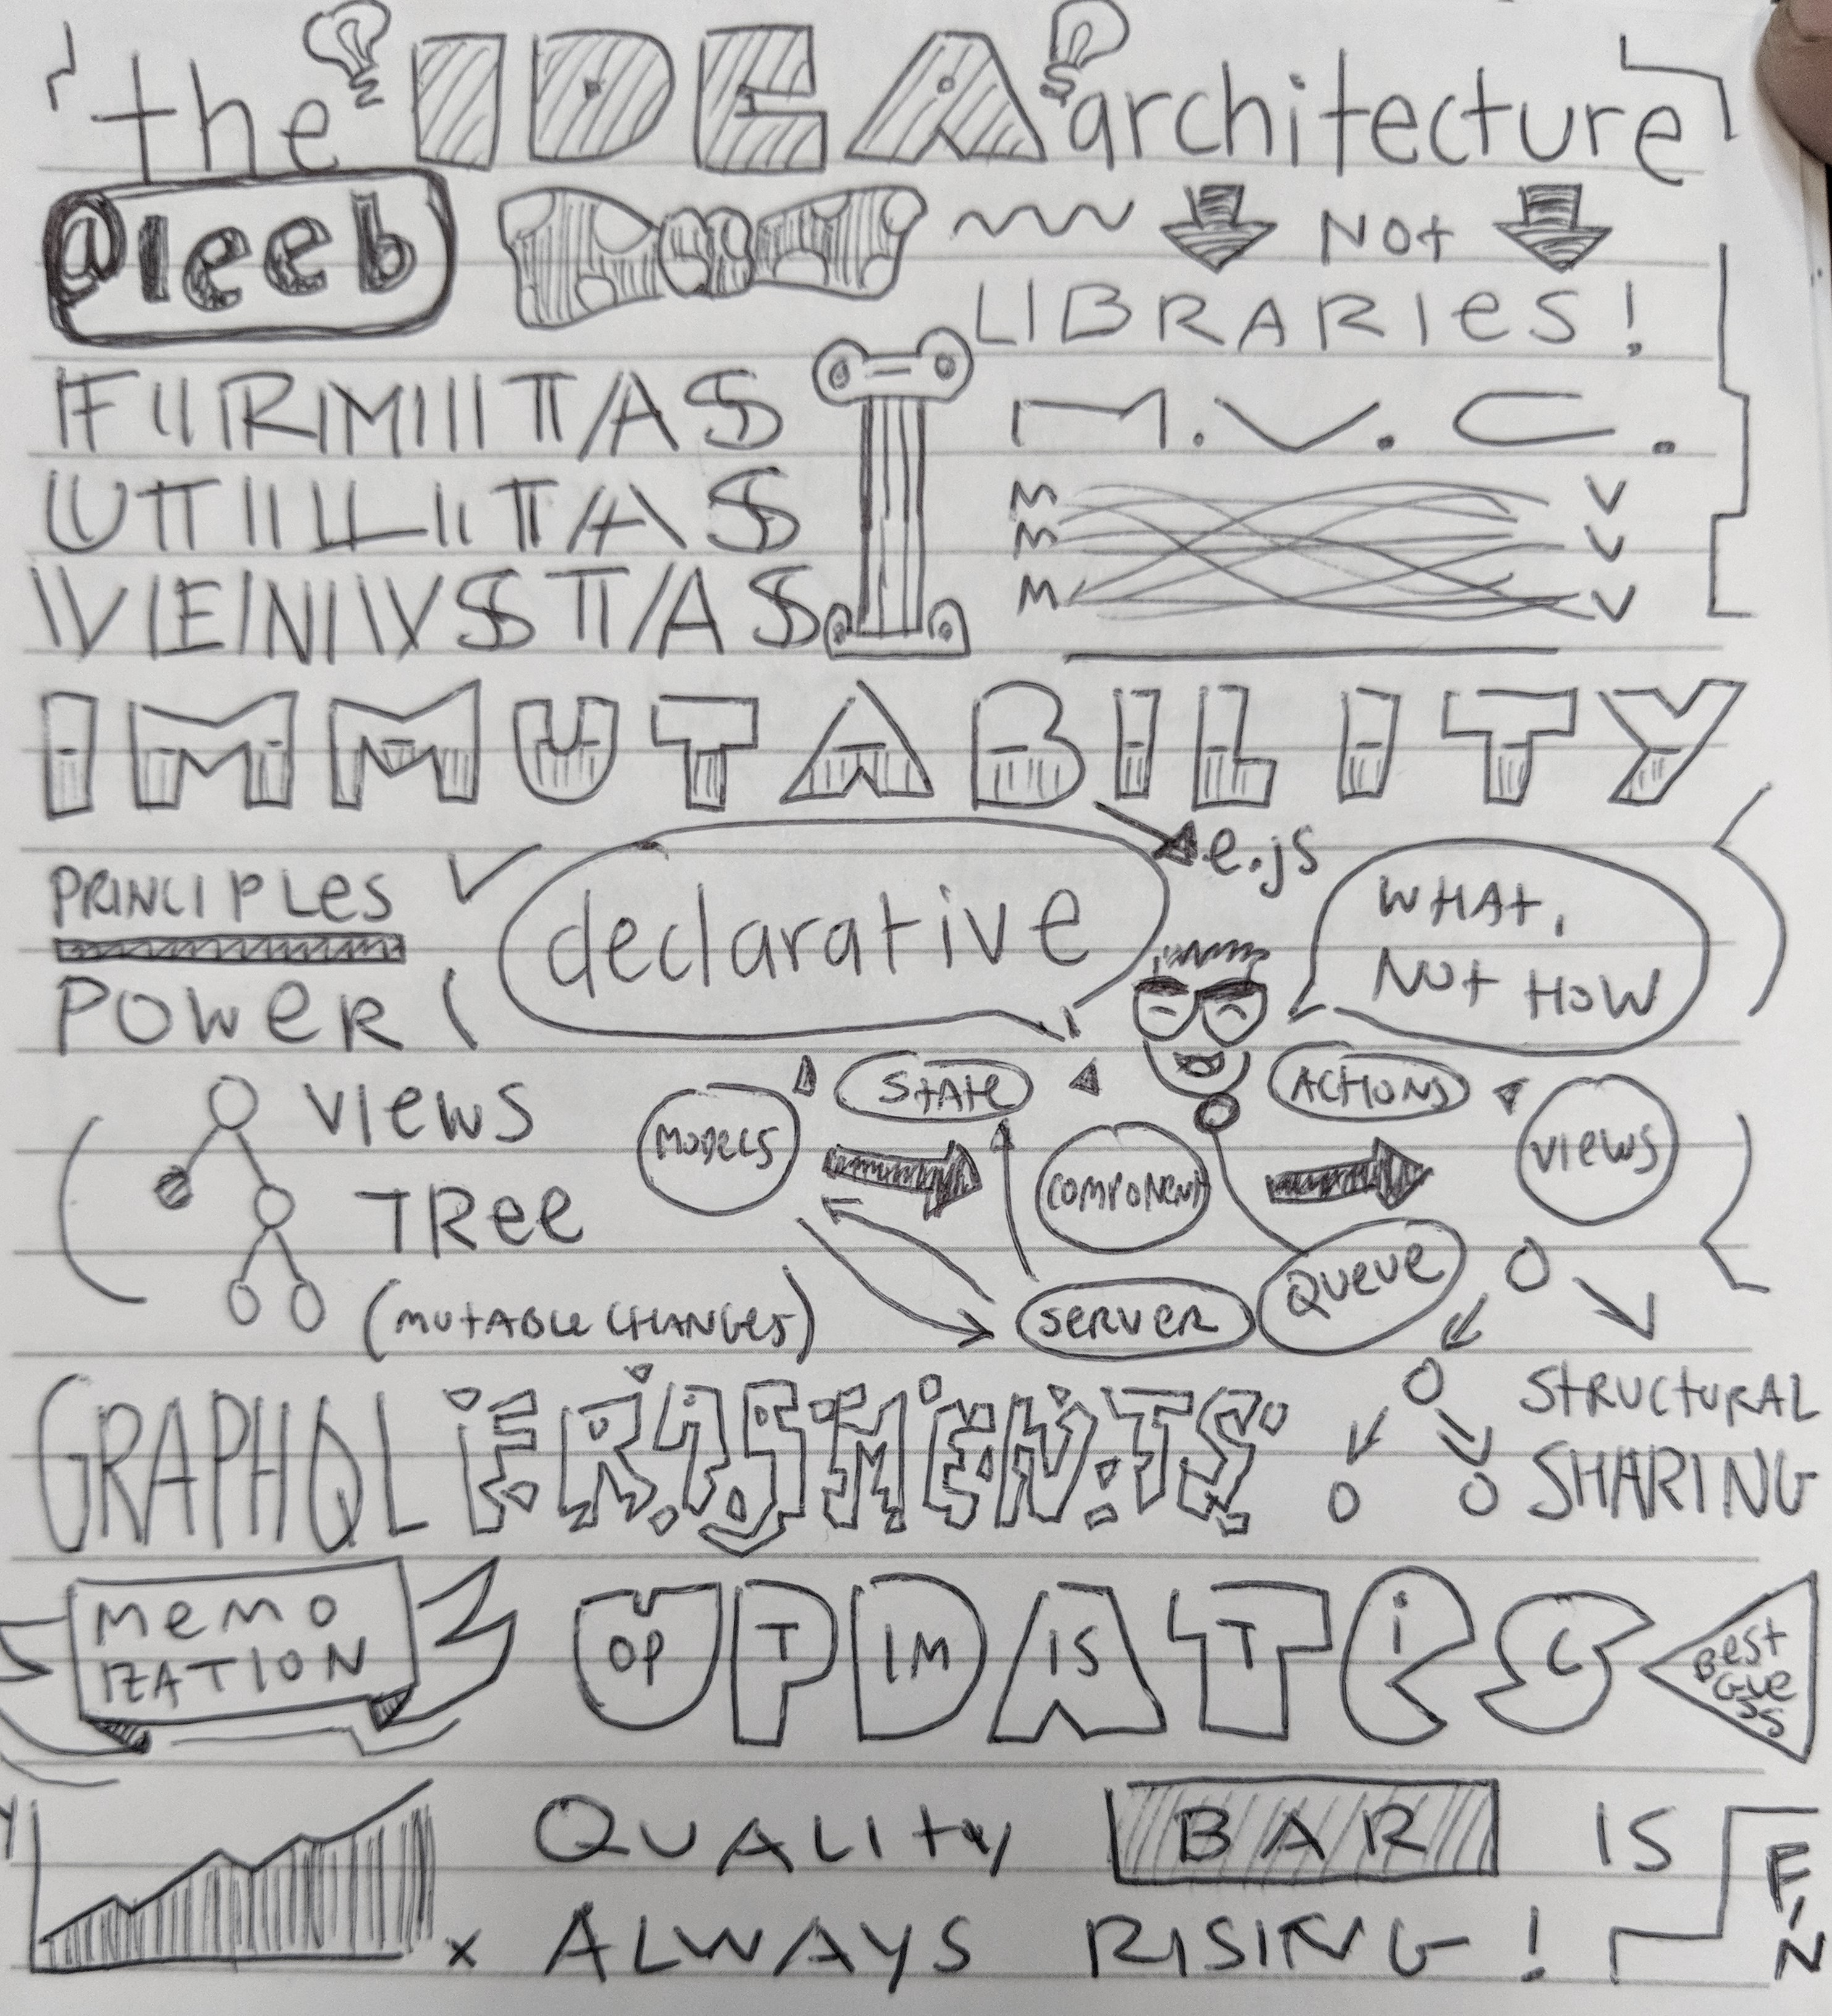 the IDEA architecture
@leeb
Not
LIBRARIES!
FIRMITAS
UTILITAS
VENVSTAS
M.V.C.
M V
M V
M V
IMMUTABILITY
e.js
PRINCIPLES
POWER
declarative
WHAT,
NOT HOW
VIEWS
TREE
(MUTABLE CHANGES)
MODELS
STATE
COMPONENT
ACTIONS
VIEWS
SERVER
QUEUE
GRAPHQL FRAGMENTS
STRUCTURAL
SHARING
MEMO
IZATION
UPDATES
OP T IM IS T I C
Best
Gue
ss
Y
x
QUALITY BAR IS
ALWAYS RISING!
FIN